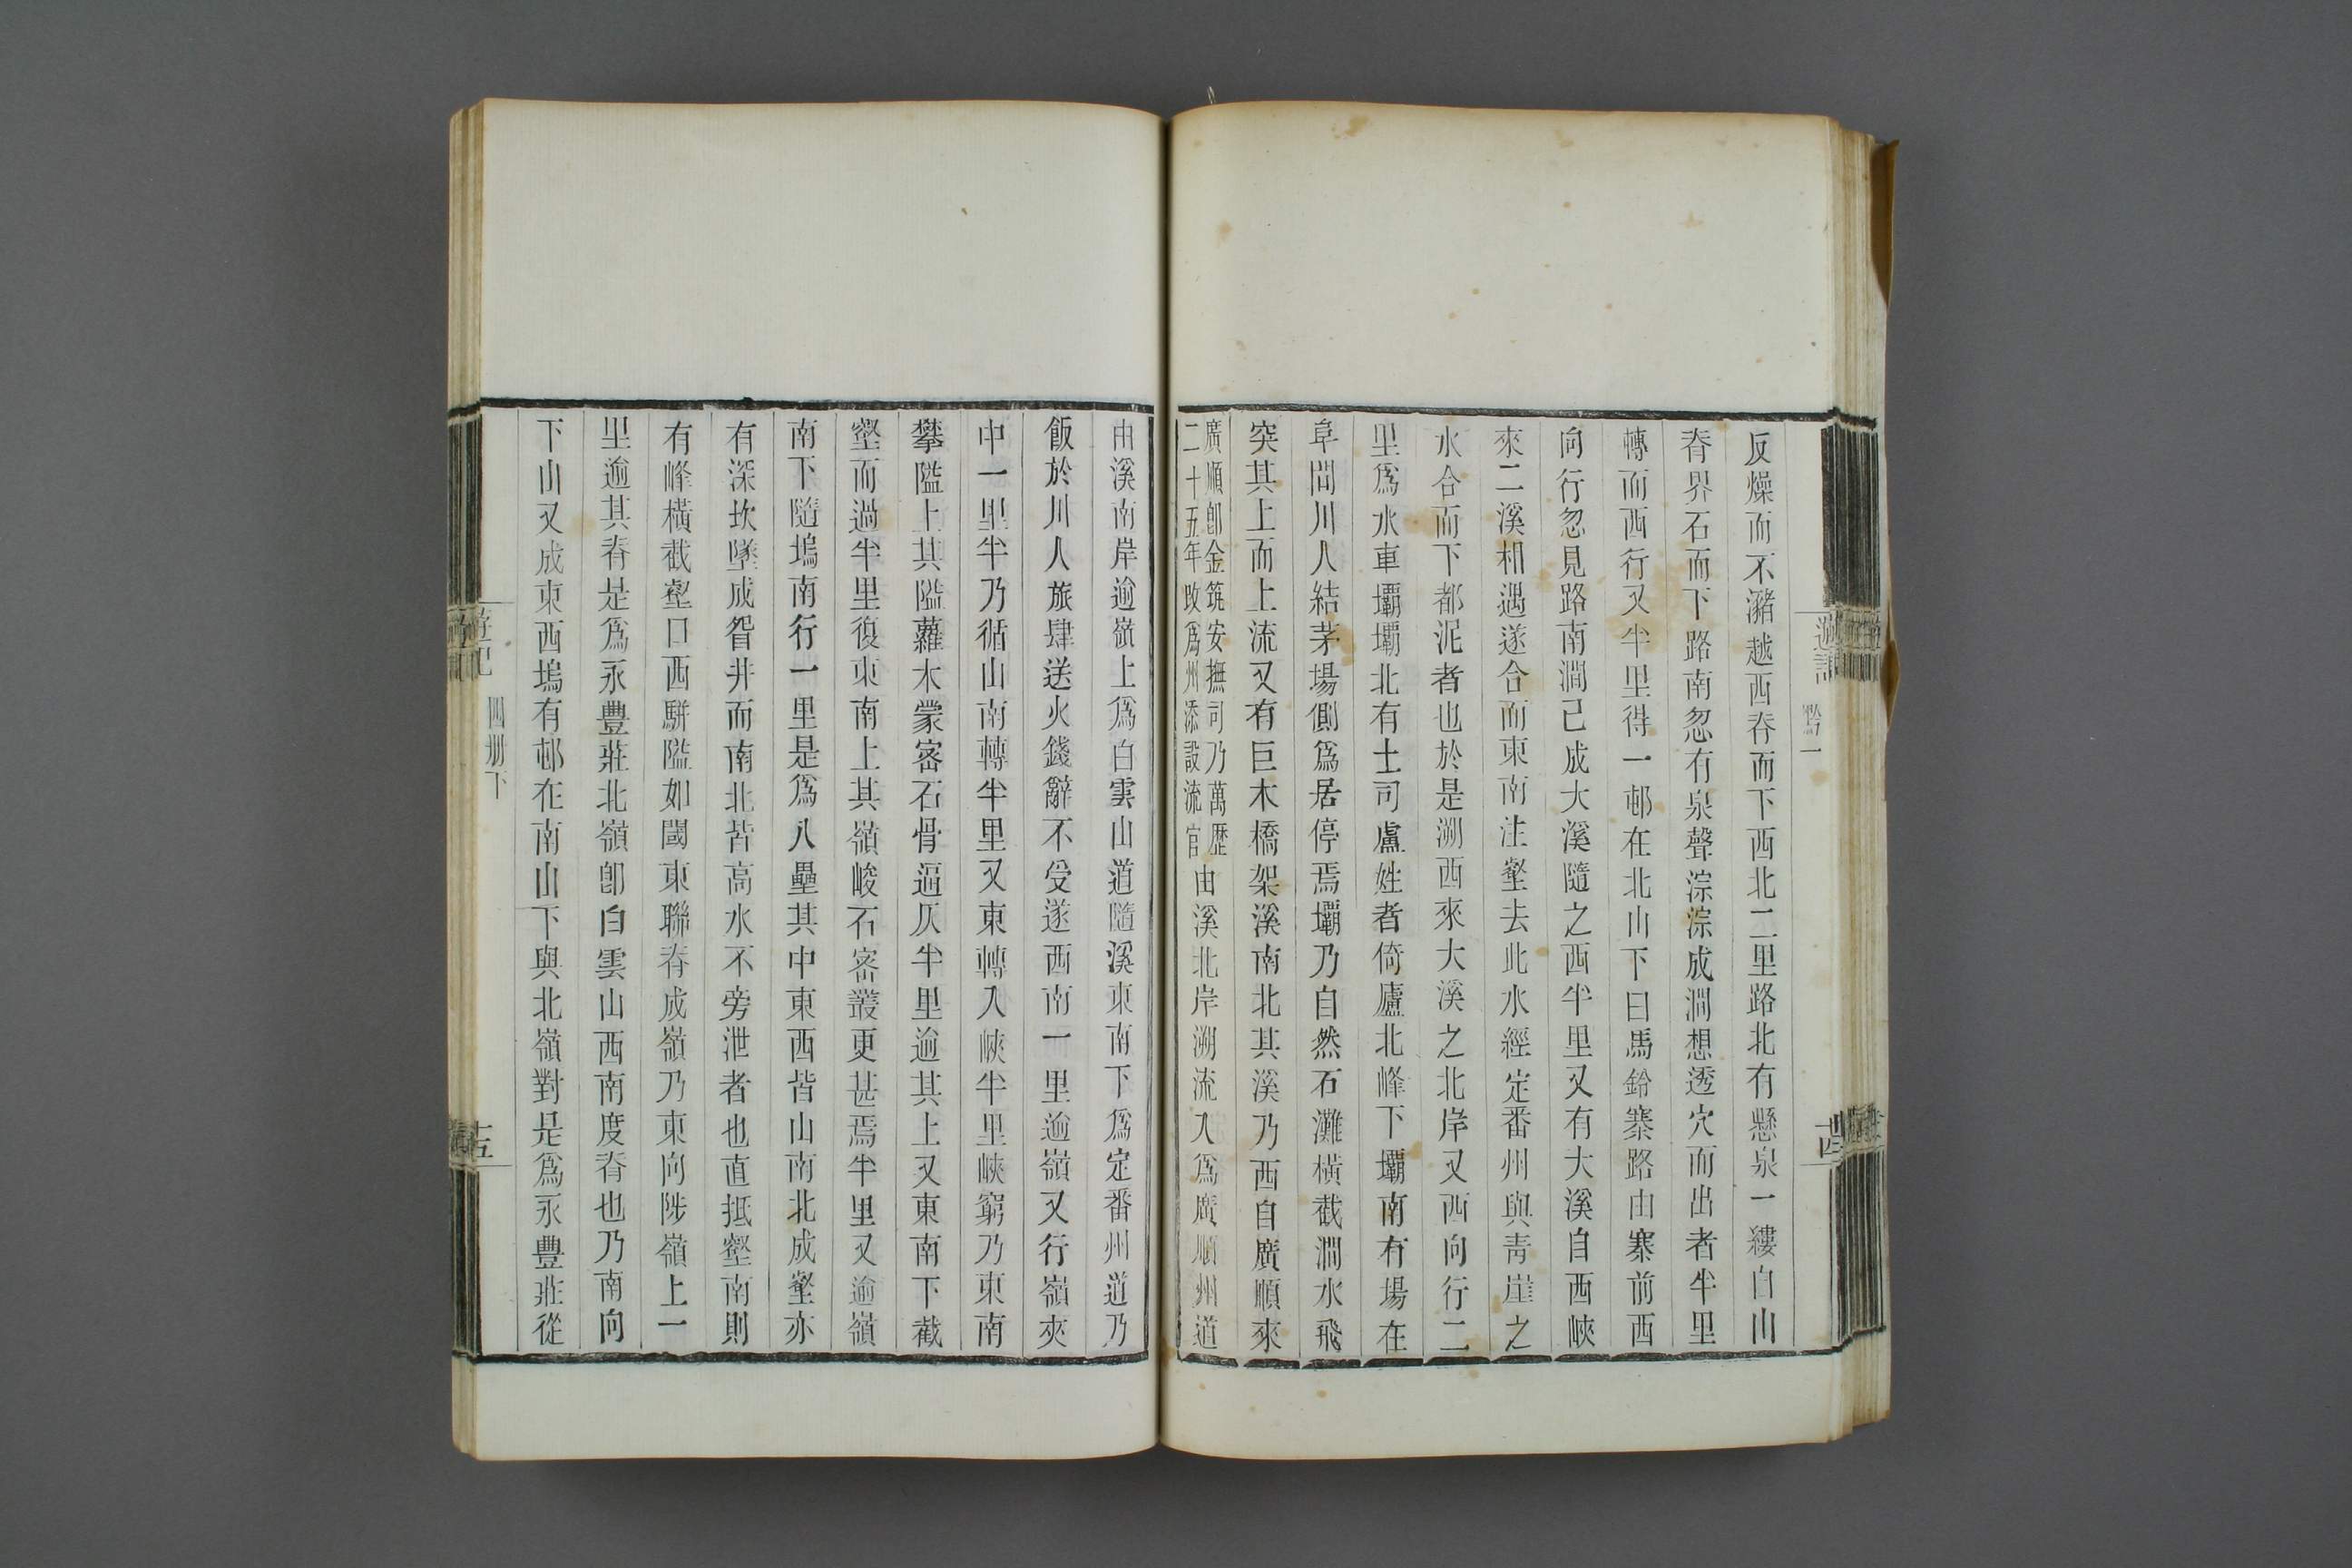 黔一
反燥而不瀦越西脊而下西北二里路北有懸泉一縷自山
脊界石而下路南忽有泉聲淙淙成澗想透穴而出者半里
轉而西行又半里得一邨在北山下曰馬鈴寨路由寨前西
向行忽見路南澗已成大溪隨之西半里又有大溪自西峽
來二溪相遇遂合而東南注壑去此水經定番州與青崖之
水合而下都泥者也於是溯西來大溪之北岸又西向行二
里爲水車壩壩北有土司盧姓者倚廬北峰下壩南有場在
阜間川人結茅場側爲居停焉壩乃自然石灘橫截澗水飛
突其上而上流又有巨木橋架溪南北其溪乃西自廣順來
廣順卽金筑安撫司乃萬歷
二十五年改爲州添設流官
由溪北岸溯流入爲廣順州道
由溪南岸逾嶺上爲白雲山道隨溪東南下爲定番州道乃
飯於川人旅肆送火錢辭不受遂西南一里逾嶺又行嶺夾
中一里半乃循山南轉半里又東轉入峽半里峽窮乃東南
攀隘上其隘蘿木蒙密石骨逼仄半里逾其上又東南下截
壑而過半里復東南上其嶺峻石密叢更甚焉半里又逾嶺
南下隨塢南行一里是爲八壘其中東西皆山南北成壑亦
有深坎墜成眢井而南北皆高水不旁泄者也直抵壑南則
有峰橫截壑口西駢隘如閾東聯脊成嶺乃東向陟嶺上一
里逾其脊是爲永豐莊北嶺卽白雲山西南度脊也乃南向
下山又成東西塢有邨在南山下與北嶺對是爲永豐莊從
游記
四册下